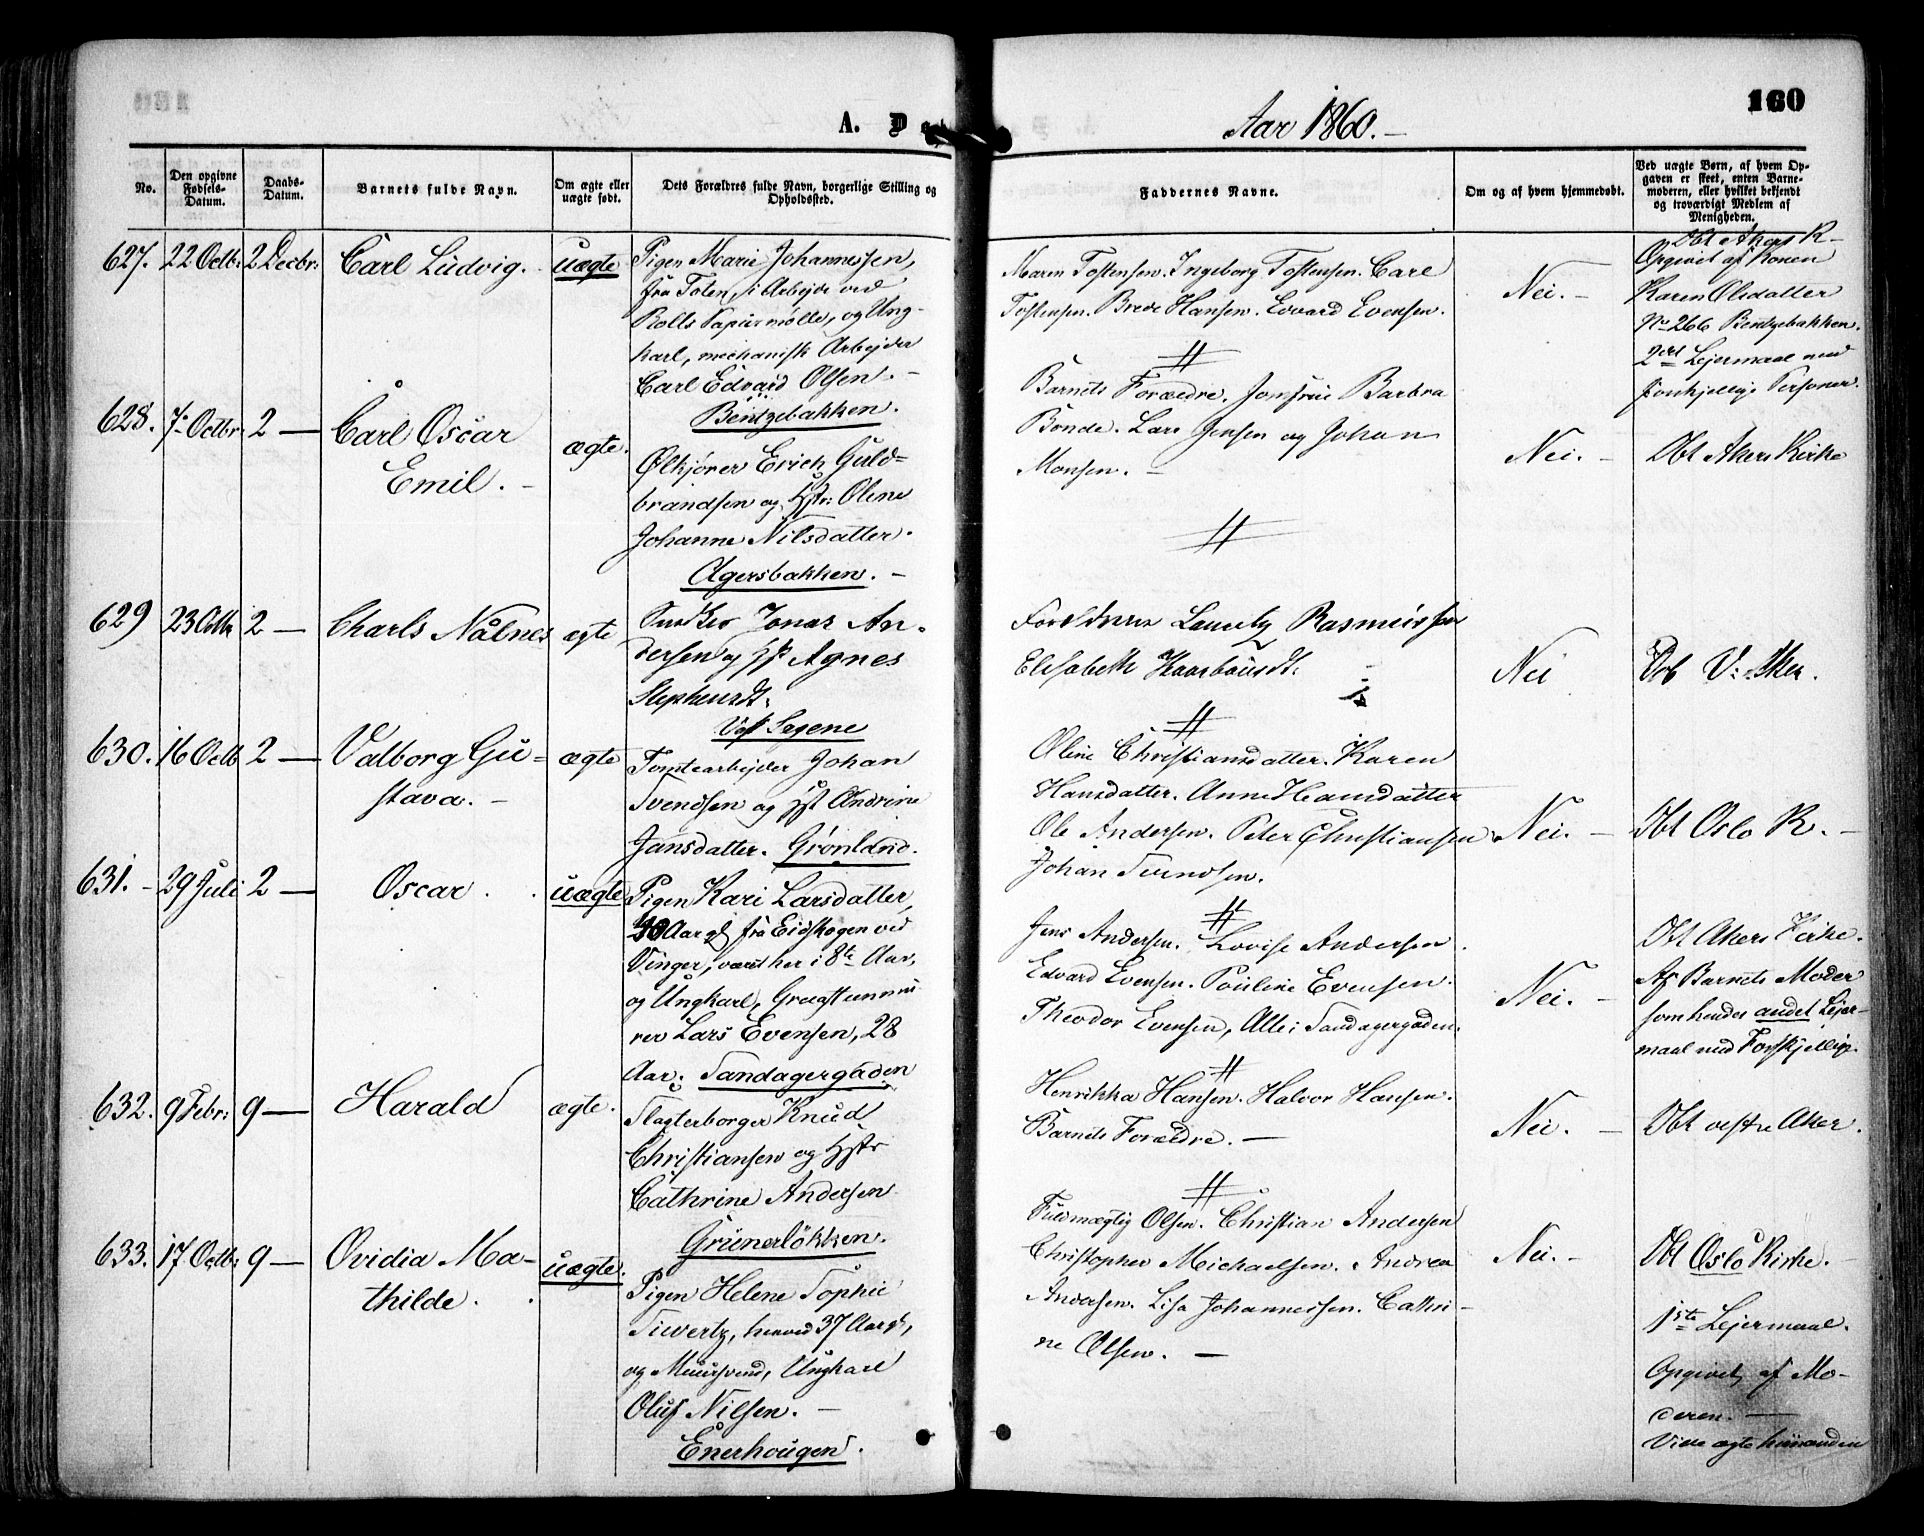 160
A. D
Aar 1860.-
No.
Den opgivne Fødsels-Datum.
Daabs-Datum.
Barnets fulde Navn.
Om ægte eller uægte født.
Dets Forældres fulde Navn, borgerlige Stilling og Opholdssted.
Faddernes Navne.
Om og af hvem hjemmedøbt.
Ved uægte Børn, af hvem Opgaven er skeet, enten Barnemoderen, eller hvilket bekjendt og troværdigt Medlem af Menigheden.
627. 22 Octb: 2 Decbr: Carl Ludvig. uægte
Pigen Marie Johannessen,
fra Toten, i Arbejde ved
Bolts Papirmølle, og Ung-
karl, mechanisk Arbejder
Carl Edvard Olsen. -
Bentzebakken.
Maren Tostensen. Ingeborg Tostensen. Carl
Tostensen. Brede Hansen. Edvard Evensen.
Nei. -
Dbt Akers K-
Opgivet af Konen
Karen Olsdatter
No 266 Bentzebakken.
2det Lejermaal med
forskjellige Personer.
628. 7. Octbr 2 — Carl Oscar
Emil. -
ægte.
Ølkjører Erich Guld=
brandsen og Hstr: Oline
Johanne Nilsdatter.
Agersbakken. -
Barnets Forældre. Jomfrue Barbra
Bonde. Lars Jensen og Johan
Monsen. -
Nei. -
Dbt Akers Kirke
629 23 Octbr 2 — Charls Nålnes ægte
Snedker Jonas An-
dersen og Hst Agnes
Stephensdt:
Vest Sagene
Forældrene Rasmussen
Elisabeth
Nei
Døb V: Aker.
630. 16 Octb 2 — Valborg Gu=
stava. -
ægte
Tomtearbejder Johan
Svendsen og Hst Andrine
Jansdatter. Grønland.
Oline Christiansdatter. Karen
Hansdatter. Anne Hansdatter
Ole Andersen. Peter Christiansen
Johan Svendsen.
Nei. -
Dbt Oslo K. -
631. - 29 Juli 2 — Oscar. uægte
Pigen Kari Larsdatter,
Aar gl fra Eidskogen ved
Vinger, været her i 8te Aar,
og Ungkarl,
rer Lars Evensen, 28
Aar. Sandagergaden
Jens Andersen. Lovise Andersen.
Edvard Evensen. Pauline Evensen.
Theodor Evensen, Alle i Sandagergaden.
Nei. -
Dbt Akers Kirke.
Af Barnets Moder
som hendes andet Lejer-
maal med Forskjellige
632. 9 Febr: 9 — Harald ægte.
Slagterborger Knud
Christiansen og Hstr
Cathrine Andersen
Grünerløkken.
Henrikka Hansen. Halvor Hansen.
Barnets Forældre. —
Nei. -
Dbt vestre Aker.
633. 17 Octb: 9 — Ovidia Ma-
thilde.
uægte.
Pigen Helene Sophie
Siwertz, henved 37 Aar gl,
og Muursvend, Ungkarl
Oluf Nilsen. -
Enerhougen.
Fuldmægtig Olsen. Christian Andersen
Christopher Michaelsen. Andrea
Andersen. Lisa Johannessen. Cathri-
ne Olsen. —
Nei. -
Dbt Oslo Kirke.
1ste Lejermaal.
Opgivet af Mo-
deren. —
Ville ægte hinanden